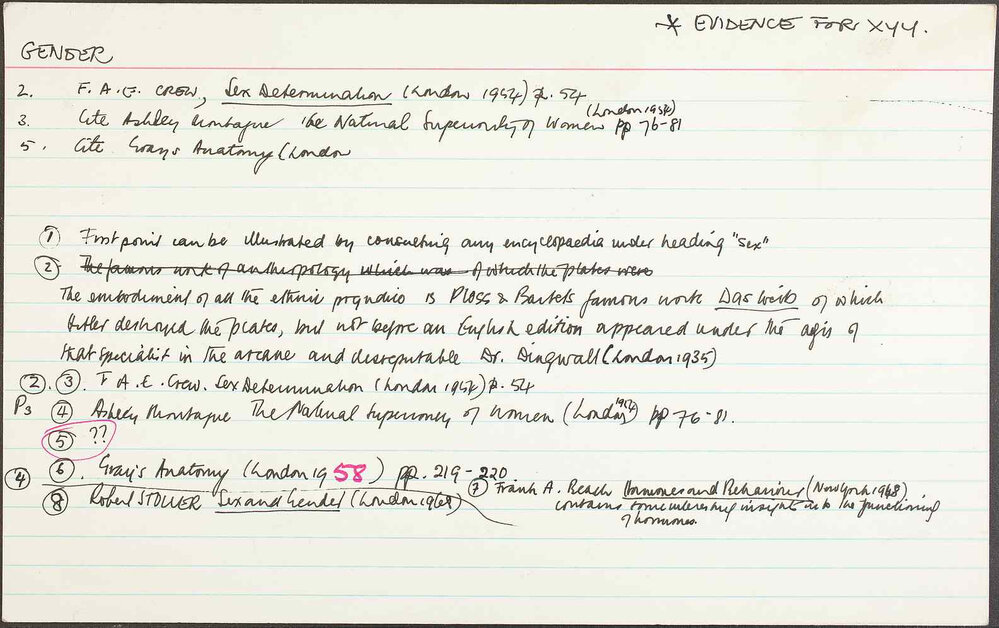 * EVIDENCE FOR XYY.
GENDER
2. F. A. E. CREW, Sex Determination (London 1954) p. 54
(London 1954)
3. Cite Ashley Montague The Natural Superiority of Women pp 76-81
5. Cite Grays Anatomy (London
① First point can be illustrated by consulting any encyclopaedia under heading "sex"
② The famous work of anthropology which was of which the plates were
The embodiment of all the ethnic prejudice is Ploss & Bartels famous work Das Weib of which
Hitler destroyed the plates, but not before an English edition appeared under the aegis of
that specialist in the arcane and disreputable Dr. Dingwall (London 1935)
②. ③. F. A. E. Crew. Sex Determination (London 1954) p. 54
P3 ④ Ashley Montague The Natural Superiority of Women (London 1954) pp 76-81.
⑤ ??
④ ⑥. Gray's Anatomy (London 1958) pp. 219-220
⑦ Frank A. Beach Hormones and Behaviour (New York 1948)
contains some interesting insights into the functioning
of hormones.
⑧ Robert STOLLER Sex and Gender (London 1968)